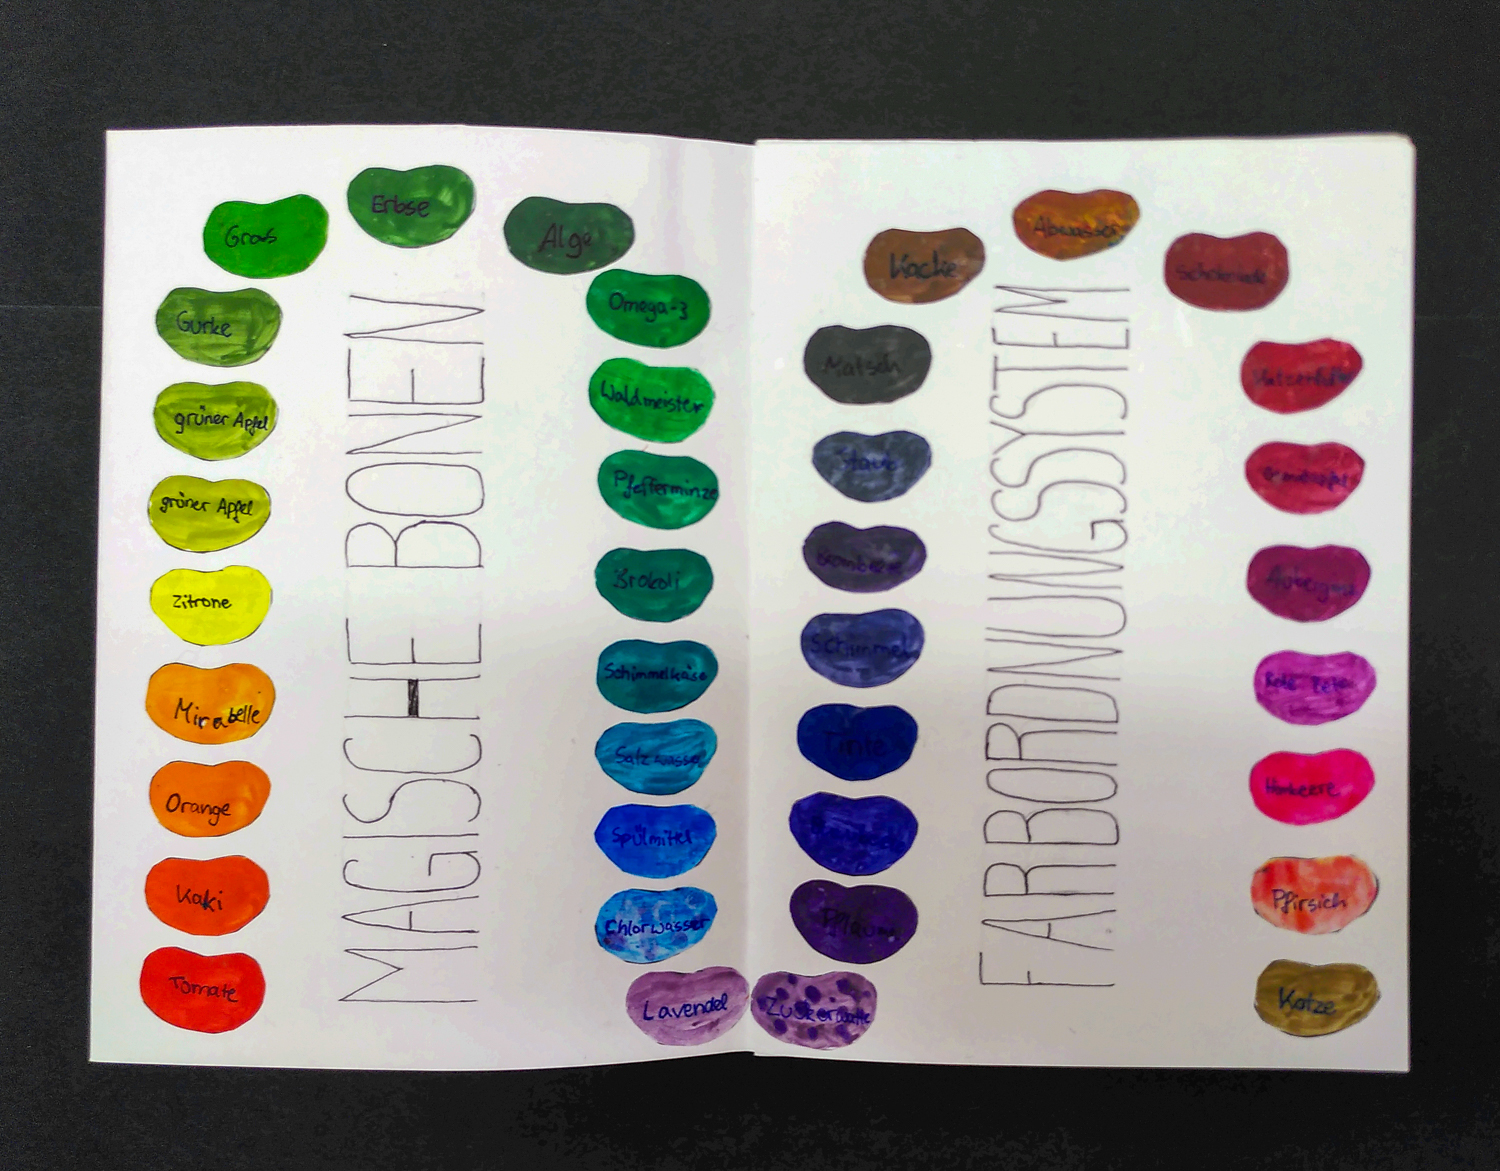 MAGISCHE BONEN
FARBORDNUNGSSYSTEM
Tomate
Kaki
Orange
Mirabelle
Zitrone
grüner Apfel
grüner Apfel
Gurke
Gras
Erbse
Alge
Omega-3
Waldmeister
Pfefferminze
Brokoli
Schimmelkäse
Salzwasser
Spülmittel
Chlorwasser
Lavendel
Zuckerwatte
Pflaume
Tinte
Schimmel
Brombeere
Staub
Matsch
Kacke
Abwasser
Schokolade
Granatapfel
Aubergine
Rote Bete
Himbeere
Pfirsich
Kotze